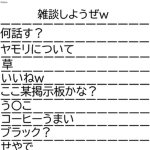 雑談しようぜw
何話す？
ヤモリについて
草
いいねw
ここ某掲示板かな？
う〇こ
コーヒーうまい
ブラック？
せやで